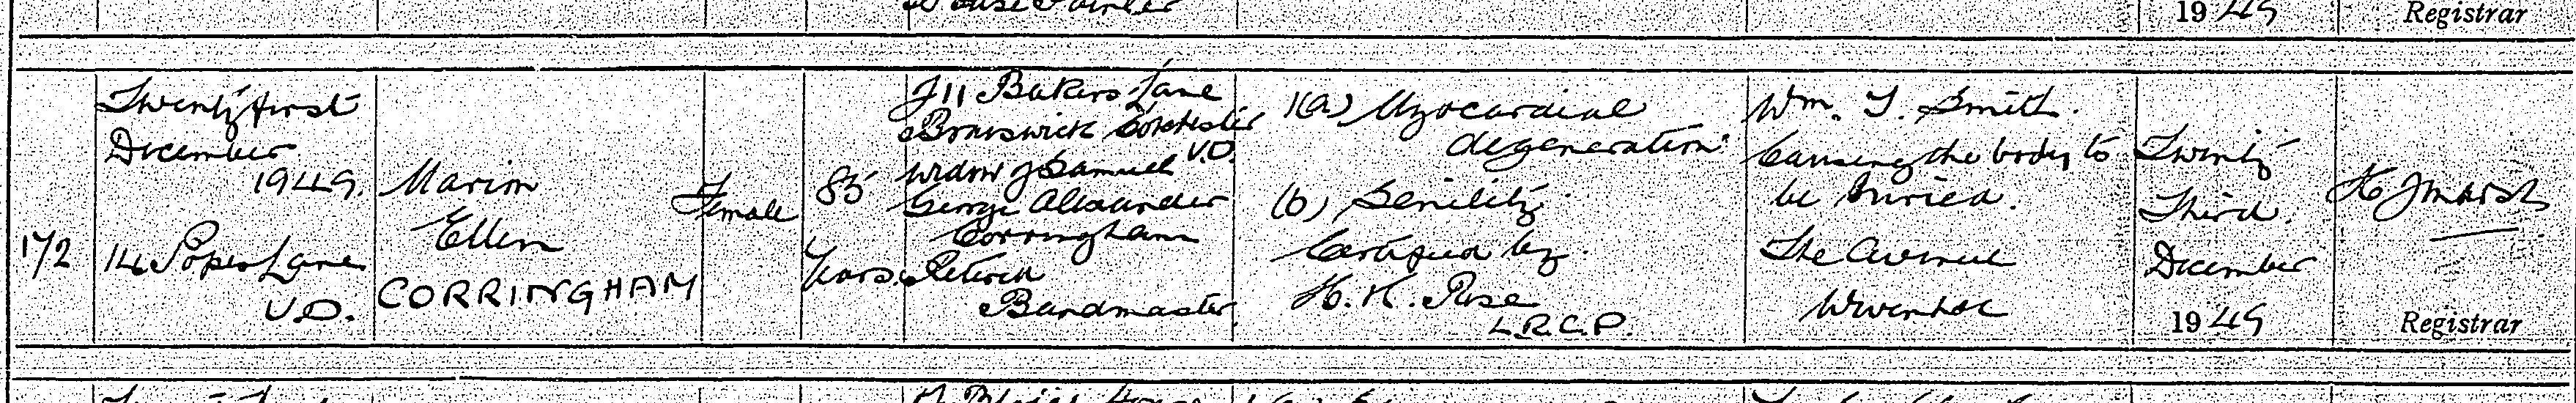 House Painter
1949
Registrar
172
Twenty first
December
1949.
14 Popes Lane
U.D.
Marion
Ellen
CORRINGHAM
Female
85
Years
of 11 Bakers Lane
Braiswick Colchester
U.D.
widow of Samuel
George Alexander
Corringham
Retired
Bandmaster.
1(a) Myocardial
degeneration.
(b) Senility.
Certified by
H. K. Rose
L.R.C.P.
Wm. T. Smith.
Causing the body to
be buried.
The Avenue
Wivenhoe
Twenty
Third.
December
1949
H J Marsh
Registrar